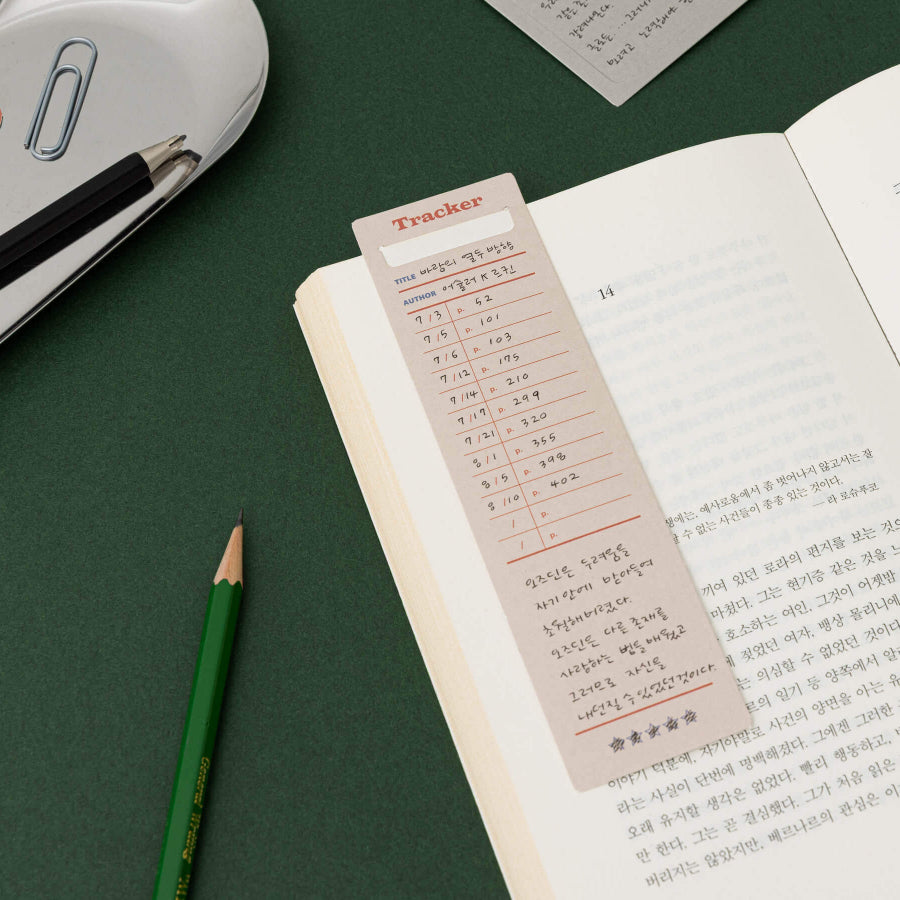 Tracker
TITLE 바람의 열두 방향
AUTHOR 어슐러 K 르귄
7 / 3 p. 52
7 / 5 p. 101
7 / 6 p. 103
7 / 12 p. 175
7 / 14 p. 210
7 / 17 p. 299
7 / 21 p. 320
8 / 1 p. 355
8 / 5 p. 398
8 / 10 p. 402
/ p.
/ p.
오즈딘은 두려움을
자기 안에 받아들여
초월해버렸다.
오즈딘은 다른 존재를
사랑하는 법을 배웠고
그러므로 자신을
내던질 수 있었던 것이다.
★★★★★
14
에는, 예사로움에서 좀 벗어나지 않고서는 잘
수 없는 사건들이 종종 있는 것이다.
— 라 로슈푸코
끼여 있던 로라의 편지를 보는 것으
마쳤다. 그는 현기증 같은 것을 느
호소하는 여인, 그것이 어젯밤
짖었던 여자, 뱅상 몰리니에
는 의심할 수 없었던 것이다
로의 일기 등 양쪽에서 알
이야기 덕분에, 자기야말로 사건의 양면을 아는 유
라는 사실이 단번에 명백해졌다. 그에겐 그러한
오래 유지할 생각은 없었다. 빨리 행동하고,
만 한다. 그는 곧 결심했다. 그가 처음 읽은
버리지는 않았지만, 베르나르의 관심은 이
General